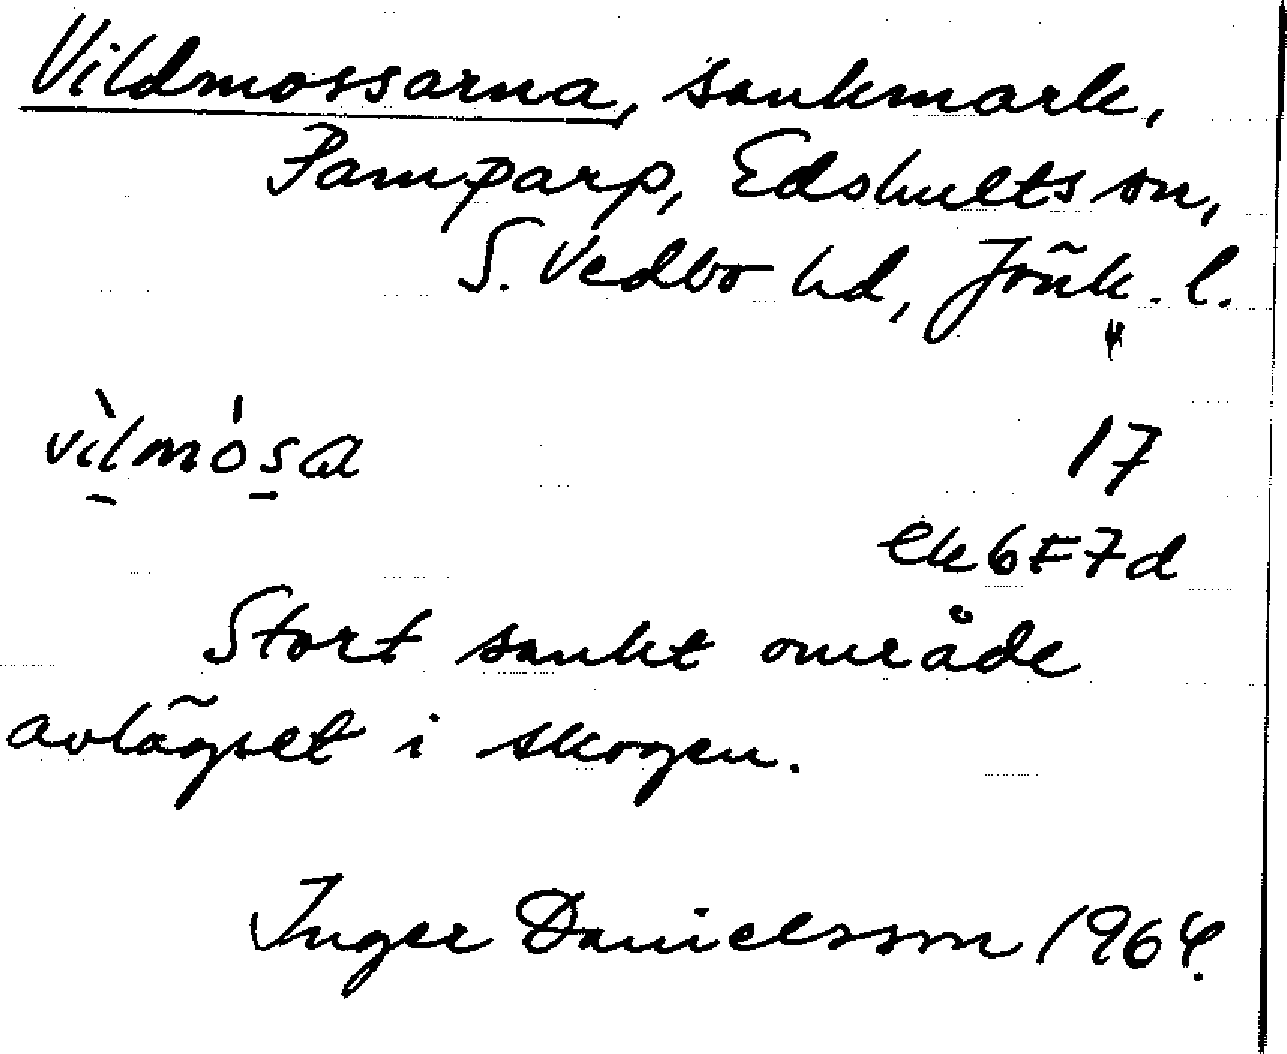 Vildmossarna, sankmark,
Pamparp, Edshults sn,
S. Vedbo hd, Jönk. l.
vìlmósa
17
ek 6F7d
Stort sankt område
avlägset i skogen.
Inger Danielsson 1964.